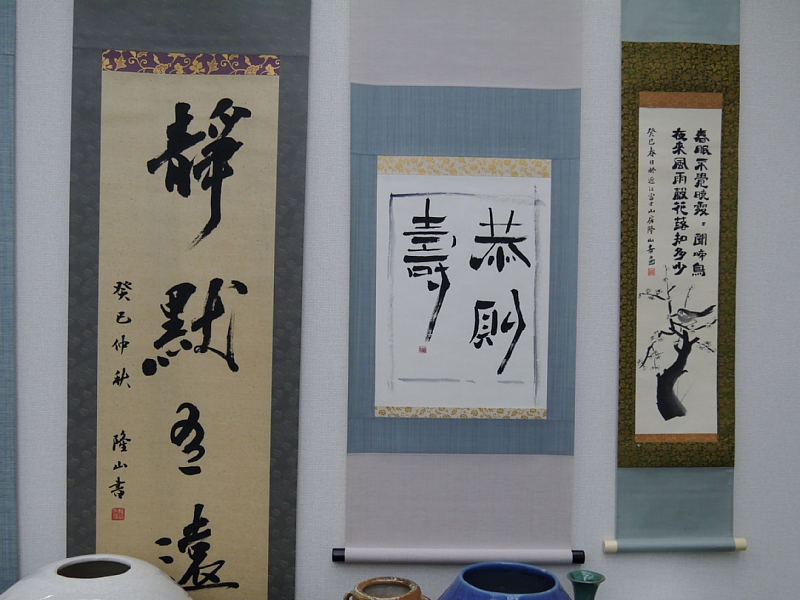 静黙
遠
癸巳仲秋 隆山書
恭則
壽
春眠不覚暁處々聞啼鳥
夜来風雨聲花落知多少
癸巳春日於近江富士山居隆山書画